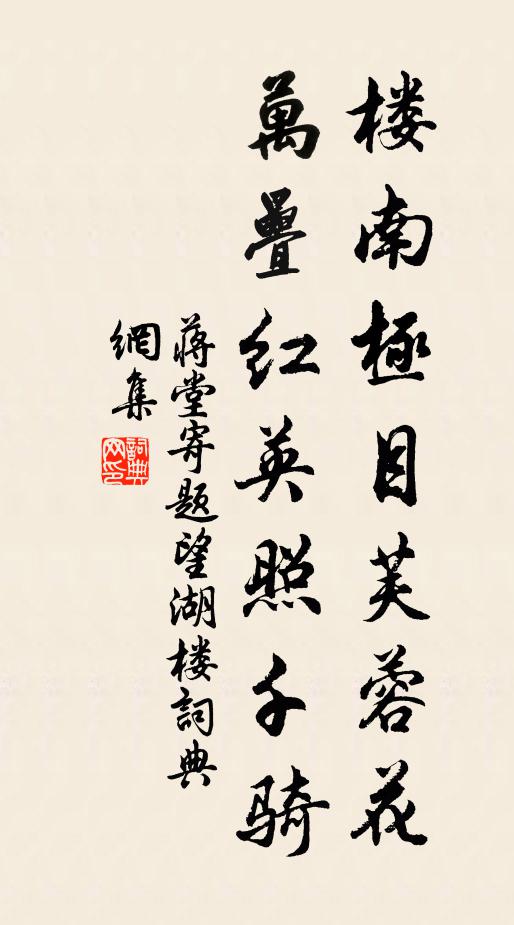 楼南極目芙蓉花
萬疊红英照千骑
蒋堂寄题望湖楼詞典
網集
詞典网印